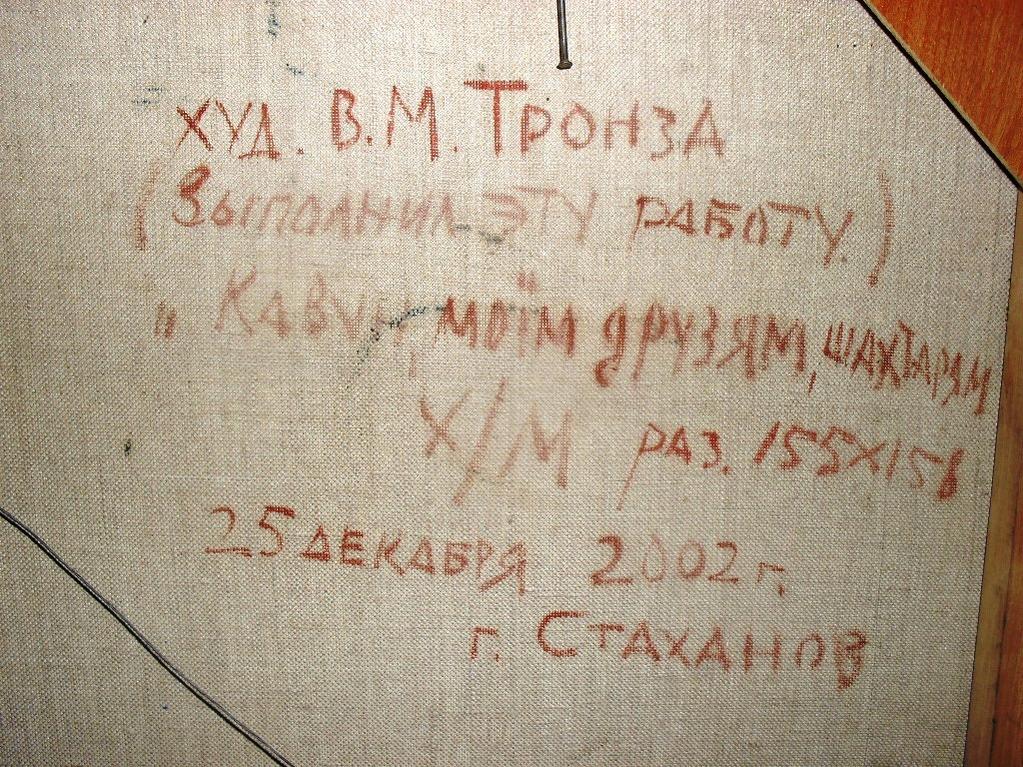 ХУД. В.М. ТРОНЗА
(ВЫПОЛНИЛ ЭТУ РАБОТУ.)
„КАВУН, МОЇМ ДРУЗЯМ, ШАХТАРЯМ"
Х/М РАЗ. 155Х156
25 ДЕКАБРЯ 2002 г.
г. СТАХАНОВ